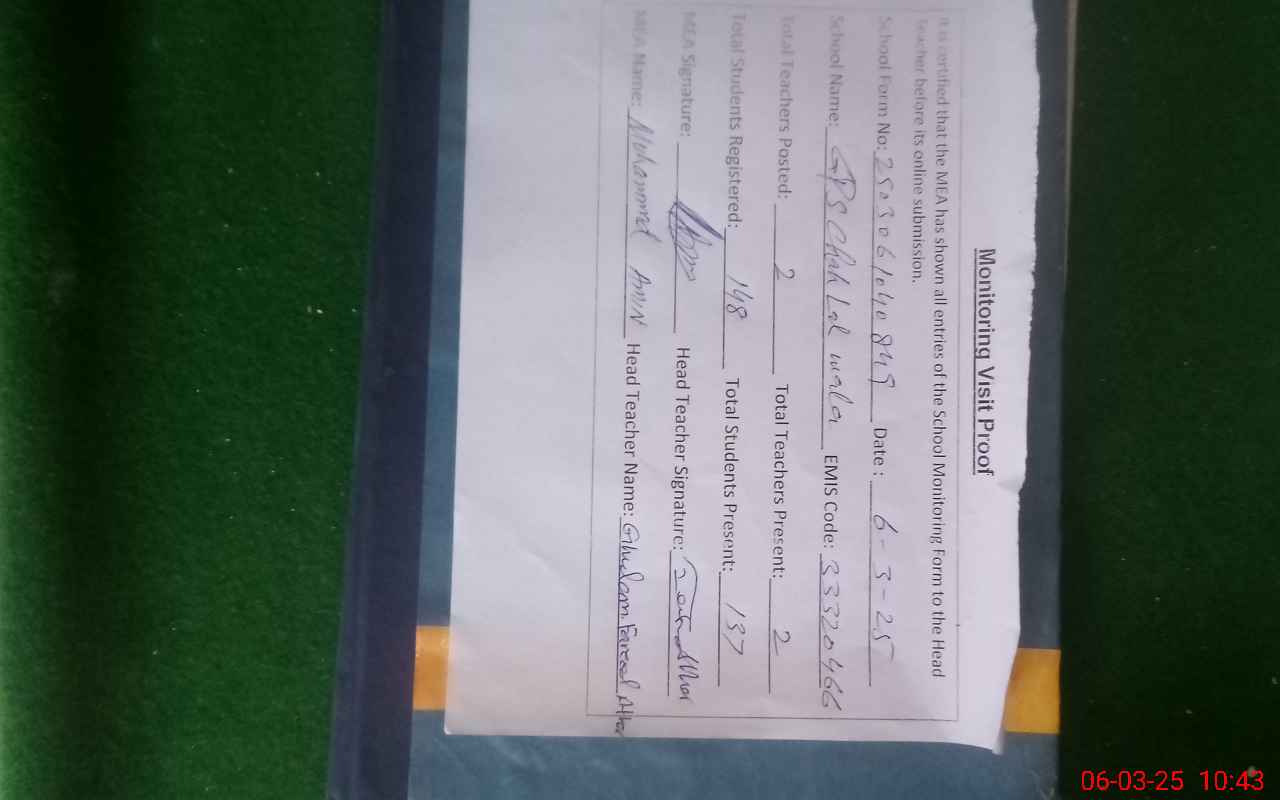 Monitoring Visit Proof
It is certified that the MEA has shown all entries of the School Monitoring Form to the Head
Teacher before its online submission.
School Form No: 2503061040849 Date : 6-3-25
School Name: GPS Chah Lal wala EMIS Code: 33320466
Total Teachers Posted: 2 Total Teachers Present: 2
Total Students Registered: 148 Total Students Present: 137
MEA Signature: Head Teacher Signature:
MEA Name: Mohammad Amin Head Teacher Name: Ghulam Fareed Athar
06-03-25 10:43